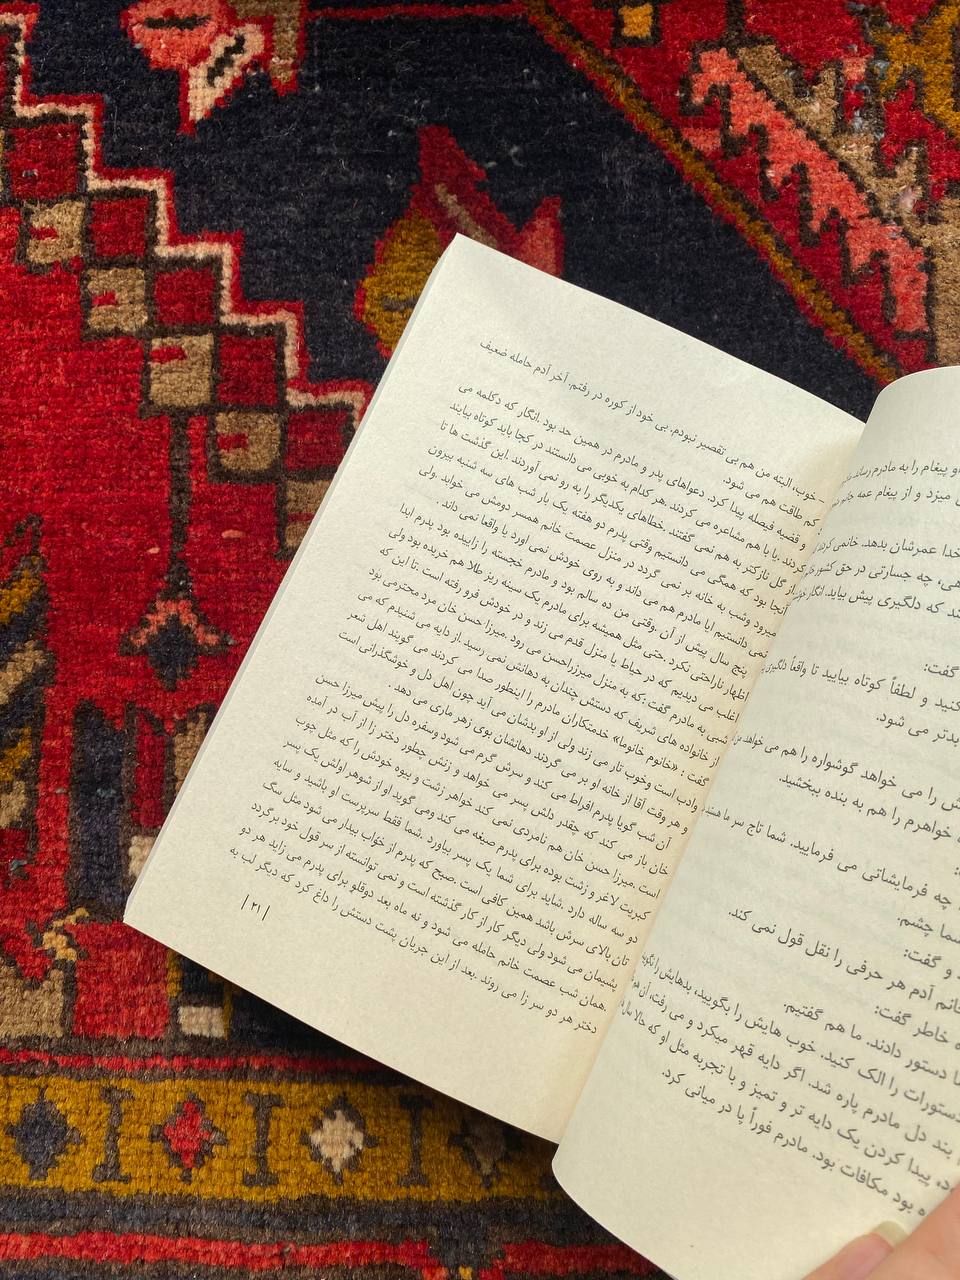 و پیغام را به مادرم رساند
میزد و از پیغام عمه جانم
خدا عمرشان بدهد. خانمی کردند
چه جسارتی در حق کشور
که دلگیری پیش بیاید. انگار
گفت:
کنید و لطفاً کوتاه بیایید تا واقعاً دلگیری
بدتر می شود.
را می خواهد گوشواره را هم می خواهد
خواهرم را هم به بنده ببخشید.
چه فرمایشاتی می فرمایید. شما تاج سر ما هستید
چشم.
و گفت:
خانم آدم هر حرفی را نقل قول نمی کند.
خاطر گفت:
دستور دادند. ما هم گفتیم.
دستورات را الک کنید. خوب هایش را بگویید، بدهایش را
بند دل مادرم پاره شد. اگر دایه قهر میکرد و می رفت، آن
پیدا کردن یک دایه تر و تمیز و با تجربه مثل او که حالا
بود مکافات بود. مادرم فوراً پا در میانی کرد.
– خوب، البته من هم بی تقصیر نبودم. بی خود از کوره در رفتم. آخر آدم حامله ضعیف
کم طاقت هم می شود.
و قضیه فیصله پیدا کرد. دعواهای پدر و مادرم در همین حد بود .انگار که دکلمه می
کردند .یا با هم مشاعره می کردند .هر کدام به خوبی می دانستند در کجا باید کوتاه بیایند
از گل نازکتر به هم نمی گفتند .خطاهای یکدیگر را به رو نمی آوردند .این گذشت ها تا
آنجا بود که همگی می دانستیم وقتی پدرم دو هفته یک بار شب های سه شنبه بیرون
میرود وشب به خانه بر نمی گردد در منزل عصمت خانم همسر دومش می خوابد .ولی
نمی دانستیم ایا مادرم هم می داند و به روی خودش نمی اورد یا واقعا نمی داند .
پنج سال پیش از آن .وقتی من ده سالم بود و مادرم خجسته را زاییده بود پدرم ابدا
اظهار ناراحتی نکرد .حتی مثل همیشه برای مادرم یک سینه ریز طلا هم خریده بود ولی
اغلب می دیدیم که در حیاط یا منزل قدم می زند و در خودش فرو رفته است .تا این که
شبی به مادرم گفت :که به منزل میرزاحسن می رود .میرزا حسن خان مرد محترمی بود
از خانواده های شریف که دستش چندان به دهانش نمی رسید .از دایه می شنیدم که می
گفت : «خانوم خانوما» خدمتکاران مادرم را اینطور صدا می کردند می گویند اهل شعر
وادب است وخوب تار می زند ولی از او بدشان می آید چون اهل دل و خوشگذرانی است
و هر وقت آقا از خانه او بر می گردند دهانشان بوی زهر ماری می دهد .
آن شب گویا پدرم افراط می کند و سرش گرم می شود وسفره دل را پیش میرزا حسن
خان باز می کند که چقدر دلش پسر می خواهد و زنش چطور دختر زا از آب در امده
است .میرزا حسن خان هم نامردی نمی کند خواهر زشت و بیوه خودش را که مثل چوب
کبریت لاغر و زشت بوده برای پدرم صیغه می کند ومی گوید او از شوهر اولش یک پسر
دو سه ساله دارد .شاید برای شما یک پسر بیاورد .شما فقط سرپرست او باشید و سایه
تان بالای سرش باشد همین کافی است .صبح که پدرم از خواب بیدار می شود مثل سگ
پشیمان می شود ولی دیگر کار از کار گذشته است و نمی توانسته از سر قول خود برگردد
.همان شب عصمت خانم حامله می شود و نه ماه بعد دوقلو برای پدرم می زاید هر دو
دختر هر دو سر زا می روند .بعد از این جریان پشت دستش را داغ کرد که دیگر لب به
|۲۱|